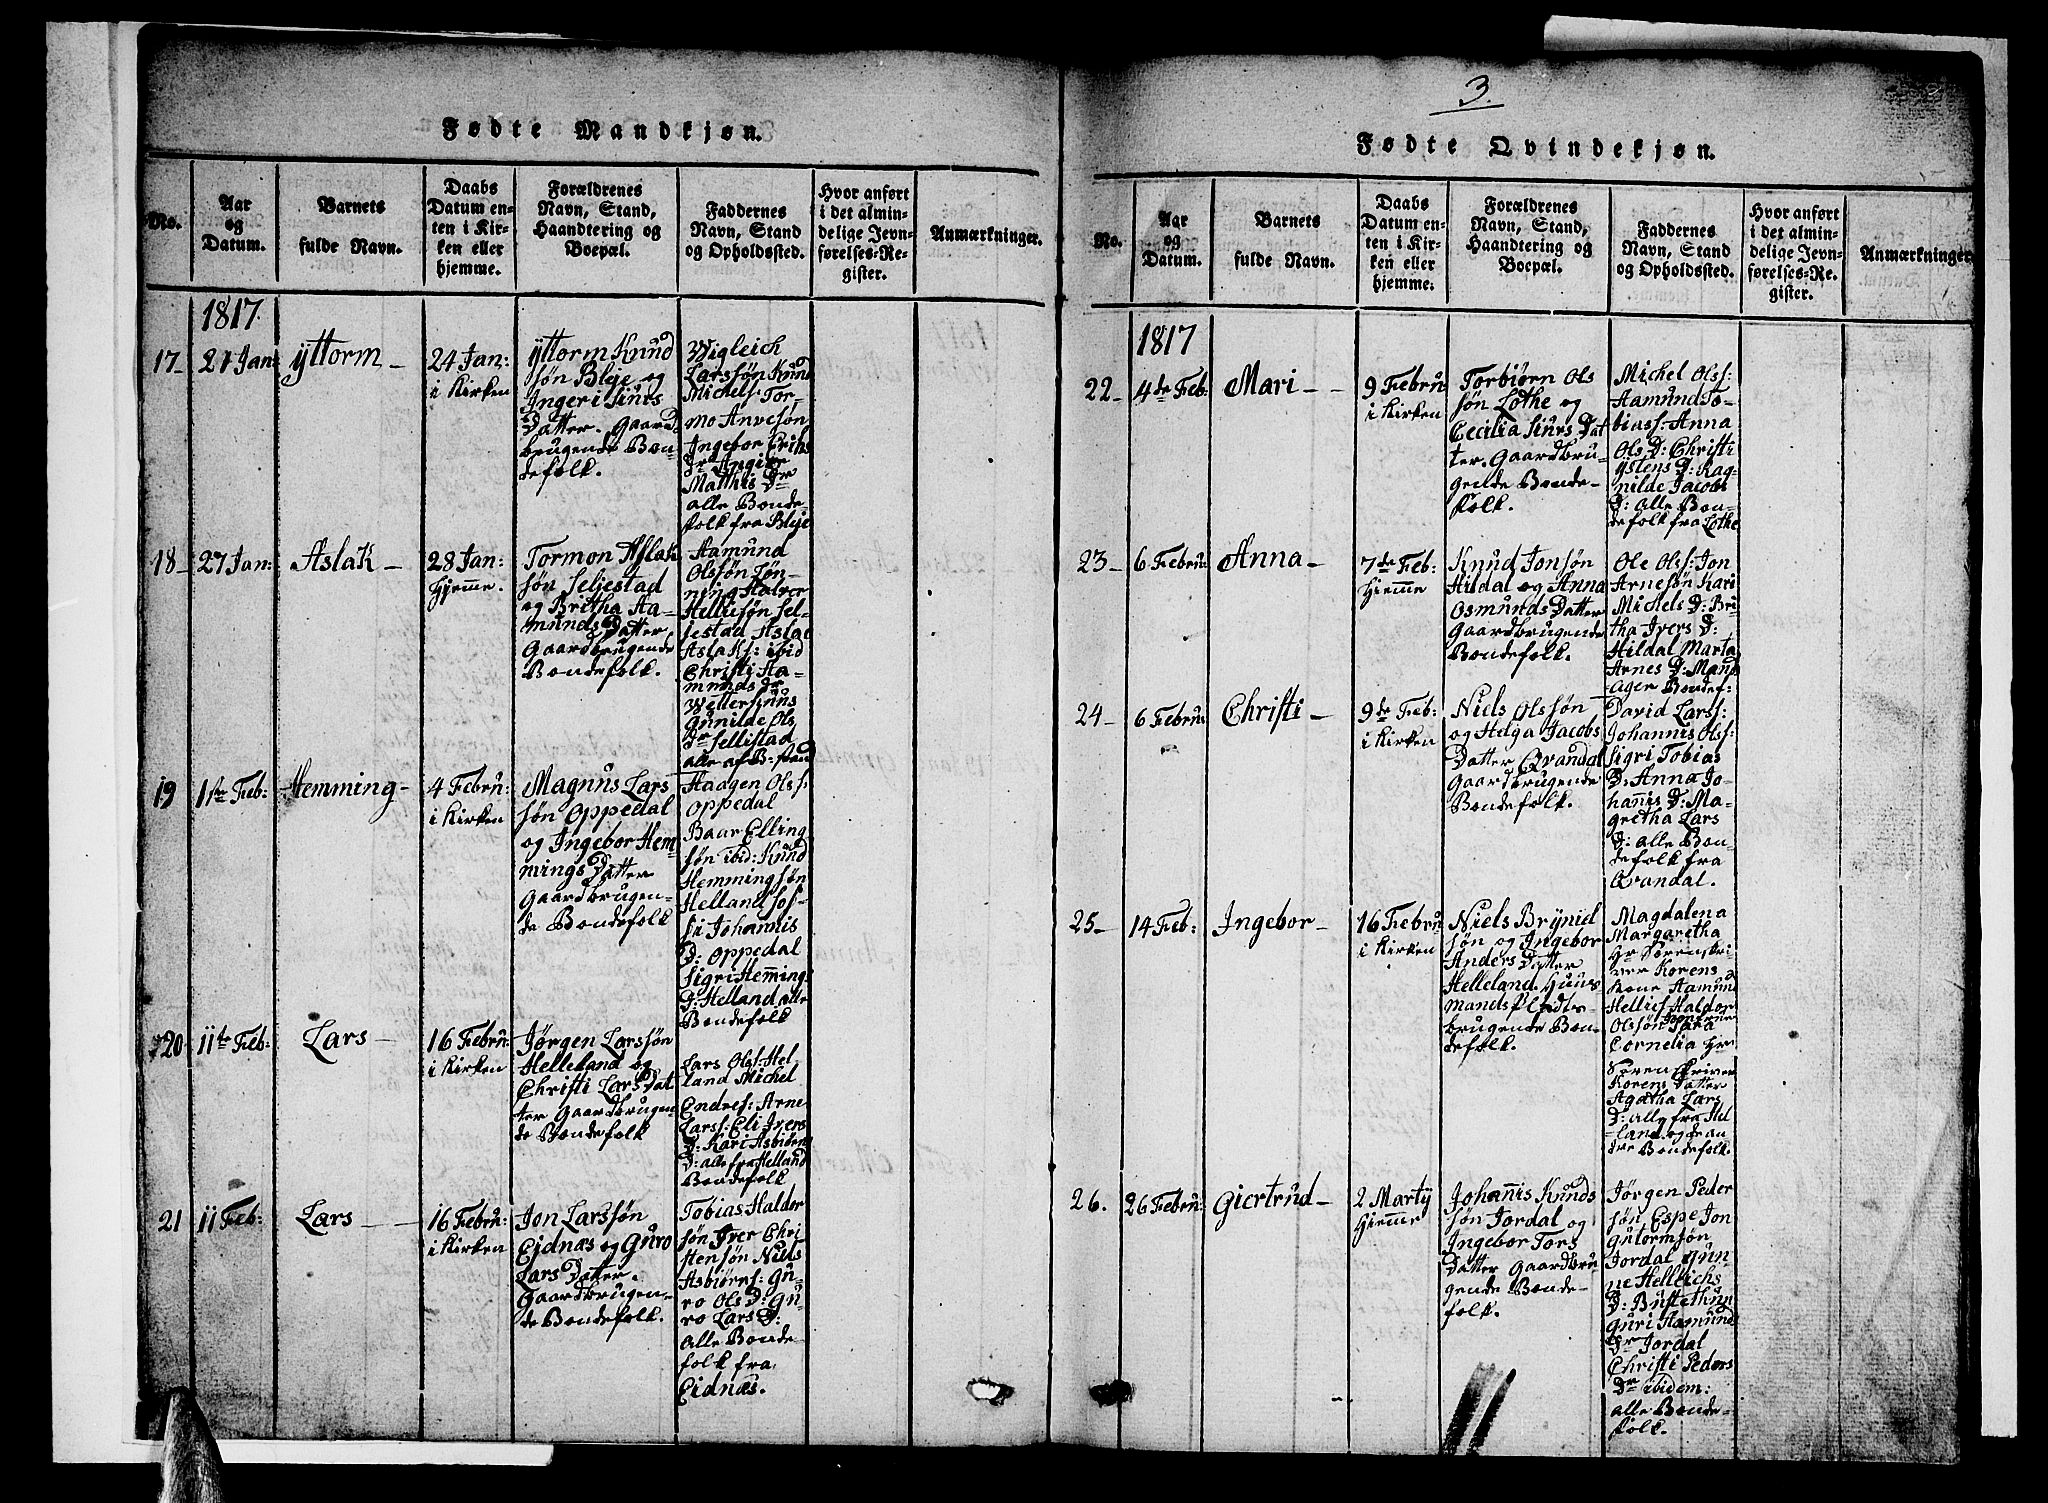 3.
Fødte Mandkjøn.
No.
Aar
og
Datum.
Barnets
fulde Navn.
Daabs
Datum en-
ten i Kir-
ken eller
hjemme.
Forældrenes
Navn, Stand,
Haandtering og
Boepæl.
Faddernes
Navn, Stand
og Opholdssted.
Hvor anført
i det almin-
delige Jevn-
førelses-Re-
gister.
Anmærkninger.
1817
17-
21 Jan:
Yttorm -
24 Jan:
i Kirken
Yttorm Knud
søn Bleje og
Ingeri Siurs
Datter. Gaard-
brugende Bon-
defolk.
Wigleich
Larssøn Knud
Michels: Tor-
mo Anvesøn
Ingebor Erichs
Dr Angier
Mathis Dr
alle Bonde-
folk fra Bleje
18-
27 Jan:
Aslak -
28 Jan:
Hjemme.
Tormon Aslak
søn Seljestad
og Britha Aa-
munds Datter
Gaardbrugende
Bondefolk.
Aamund
Olssøn Jøn-
ning Halvor
Hellisøn Sel-
jestad Aslac
Aslaks: ibid
Christi Aa-
munds Dr
Wetterhuus
Gunilde Ols
Dr Sellistad
alle af B: stand
19
1ste Feb:
Hemming -
4 Febru:
i Kirken
Magnus Lars
søn Oppedal
og Ingebor Hem-
mings Datter
Gaardbrugen-
de Bondefolk
Haagen Ols:
Oppedal
Baar Elling
søn ibid: Knud
Hemmingsøn
Helland Jos-
si Johannis
D: Oppedal
Sigri Hemmings
D: Helland alle
Bondefolk
20
11te Feb:
Lars -
16 Febru:
i Kirken
Jørgen Larssøn
Helleland og
Christi Lars Dat
ter Gaardbrugen-
de Bondefolk
Lars Ols: Hel
land Michel
Endres: Arne
Larss: Eli Ivers
D: Kari Asbiörns
D: alle fra Helland
Bondefolk
21
11 Feb:
Lars -
16 Febru:
i Kirken
Jon Larssøn
Eidnæs og Guro
Lars Datter.
Gaardbrugen-
de Bondefolk.
Tobias Haldor
søn Iver Chri
stensøn Niels
Asbiørns: Gu-
ro Ols D: Gu-
ro Lars D:
alle Bonde-
folk fra
Eidnæs.
Fødte Qvindekjøn.
No.
Aar
og
Datum.
Barnets
fulde Navn.
Daabs
Datum en-
ten i Kir-
ken eller
hjemme.
Forældrenes
Navn, Stand,
Haandtering og
Boepæl.
Faddernes
Navn, Stand
og Opholdssted.
Hvor anført
i det almin-
delige Jevn-
førelses-Re-
gister.
Anmærkninger.
1817
22-
4de Feb:
Mari -
9 Febru
i Kirken
Torbiørn Ols
søn Lothe og
Cecilia Siurs Dat
ter. Gaardbru-
gende Bonde-
folk.
Michel Olss:
Aamund To-
biass: Anna
Ols D: Christi
Ystens D: Rag-
nilde Jacobs
D: alle Bon-
defolk fra Lothe
23-
6 Febru:
Anna -
7de Feb:
Hiemme
Knud Jonsøn
Hildal og Anna
Osmunds Datter
Gaardbrugende
Bondefolk.
Ole Olss: Jon
Arnesøn Kari
Michels D: Bri
tha Ivers D:
Hildal Marta
Arnes D: Mand
ager Bondef-
24-
6 Febru:
Christi -
9de Feb:
i Kirken
Niels Olssøn
og Helga Jacobs
Datter Qvandal
Gaardbrugende
Bondefolk.
David Larss:
Johannis Olss:
Sigri Tobias
D: Anna Jo-
hannis D: Ma-
gretha Lars
D: alle Bon-
defolk fra
Qvandal.
25-
14 Feb:
Ingebor -
16 Febru
i Kirken
Niels Brynild
søn og Ingebor
Anders Datter
Helleland. Huus-
mands Pladts-
brugende Bon-
defolk.
Magdalena
Margaretha
Hr Sorenskri
ver Korens
Kone Aamund
Hellies: Haldor
Olssøn Jomfrue Sara
Cornelia Hr
Sorenskriver
Korens Datter
Agatha Lars
D: alle fra Hel
-land og de an
dre Bondefolk.
26.
26 Febru:
Giertrud -
2 Martij
Hiemme
Johannis Knuds
søn Jordal og
Ingebor Tors
Datter Gaardbru
gende Bonde-
folk.
Jørgen Peder
søn Espe Jon
Gutormsøn
Jordal Gun-
ne Helleichs
D: Bustethun
Guri Aamunds
Dr Jordal
Christi Peders
Dr ibidem:
alle Bonde-
folk.